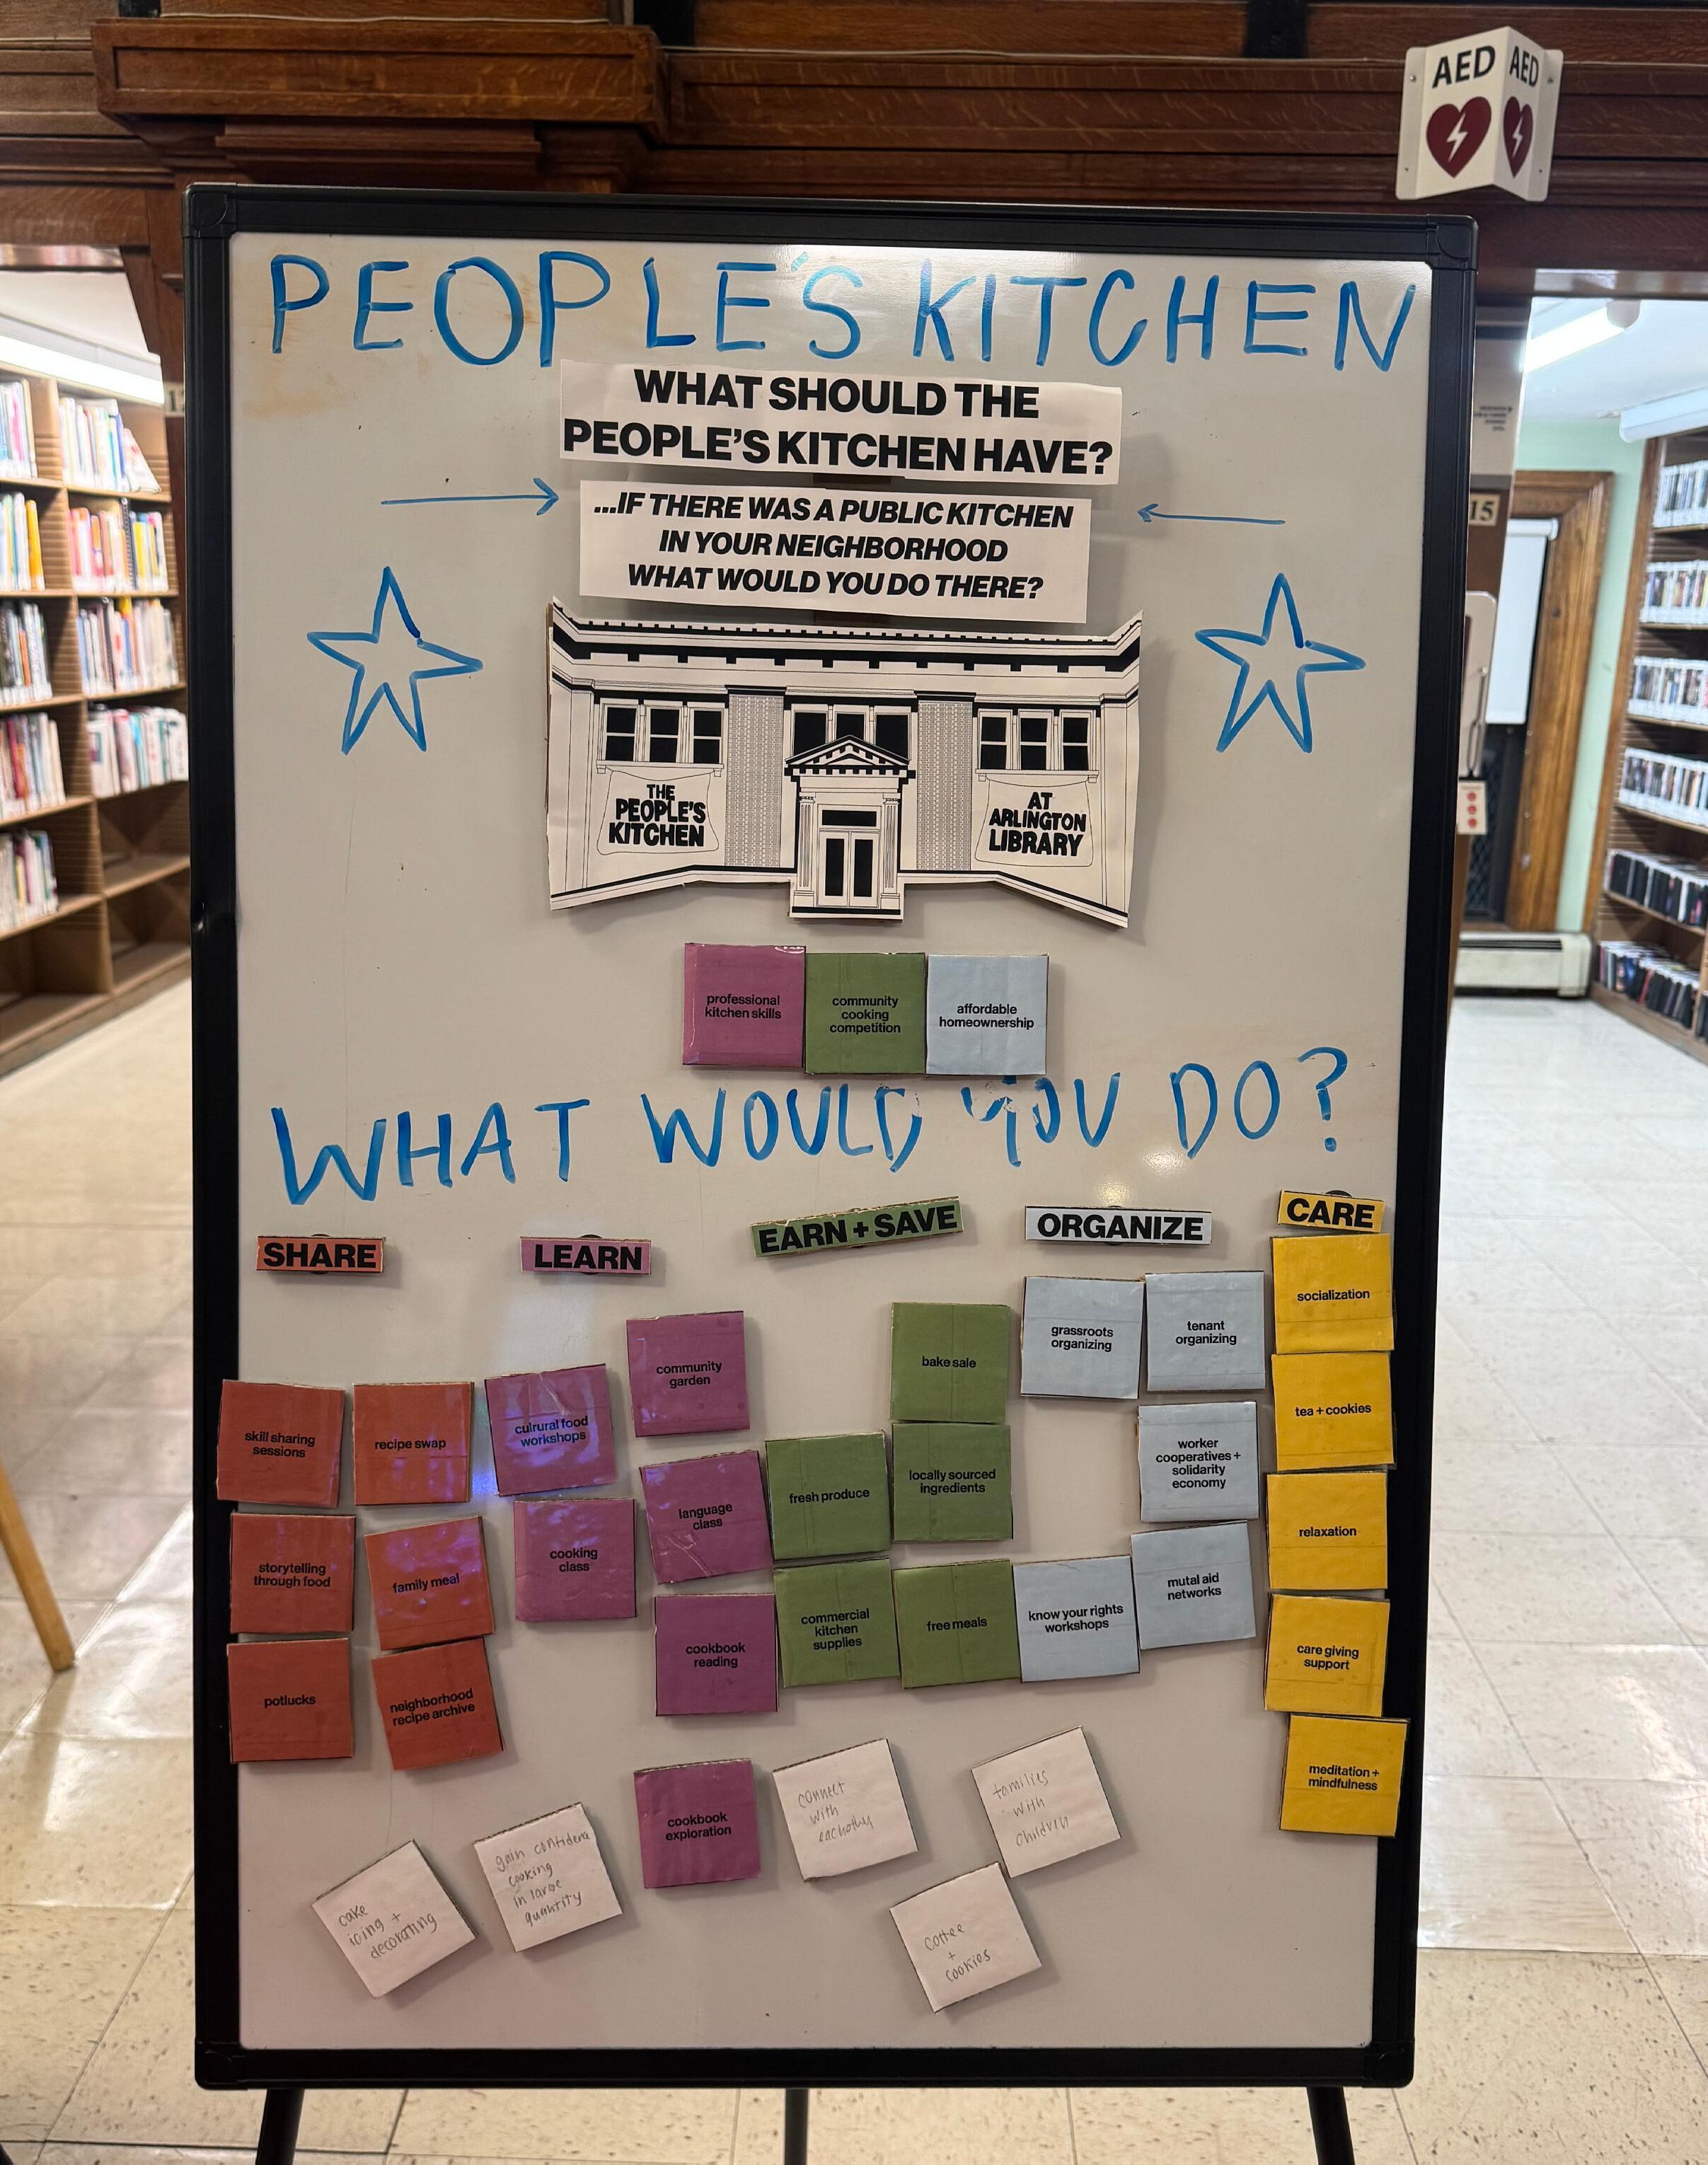 AED AED
PEOPLE'S KITCHEN
WHAT SHOULD THE
PEOPLE'S KITCHEN HAVE?
...IF THERE WAS A PUBLIC KITCHEN
IN YOUR NEIGHBORHOOD
WHAT WOULD YOU DO THERE?
15
THE
PEOPLE'S
KITCHEN
AT
ARLINGTON
LIBRARY
professional
kitchen skills
community
cooking
competition
affordable
homeownership
WHAT WOULD YOU DO?
SHARE
LEARN
EARN + SAVE
ORGANIZE
CARE
skill sharing
sessions
recipe swap
storytelling
through food
family meal
potlucks
neighborhood
recipe archive
culrural food
workshops
community
garden
cooking
class
language
class
cookbook
reading
cookbook
exploration
bake sale
fresh produce
locally sourced
ingredients
commercial
kitchen
supplies
free meals
grassroots
organizing
tenant
organizing
worker
cooperatives +
solidarity
economy
know your rights
workshops
mutal aid
networks
socialization
tea + cookies
relaxation
care giving
support
meditation +
mindfulness
cake
icing +
decorating
gain confidence
cooking
in large
quantity
connect
with
eachother
families
with
children
coffee
+
cookies